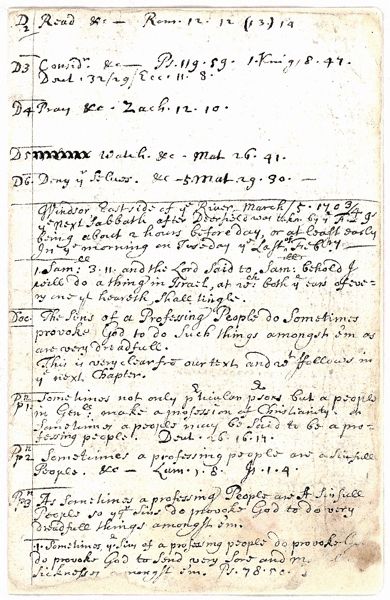 D2 Read &c — Rom. 12. 12 (13) 14
D3 Consid. &c — Ps. 119. 59. 1 King 8. 47.
Deut. 32/29/ Ecc. 11. 8.
D4 Pray &c. Zach. 12. 10.
D5 Watch. &c — Mat 26. 41.
D6. Deny yr selves. &c — 5. Mat 29. 30 —
Windsor East side of ye River. March /5. 1703/4
ye next Sabbath after Deerfield was taken by ye F. & I's
being about 2 hours before day, or at least early
in ye morning on Tuesday ye Last Feb.
1. Sam: 3. 11. and the Lord said to Sam: behold I
will do a thing in Israel, at wc: both ye ears of eve-
ry one yt heareth, shall tingle.
Doc. The Sins of a Professing People do Sometimes
provoke God to do such things amongst em as
are very dreadfull.
This is very clear fro our text and wt follows in
ye next Chapter.
Pn 1. Sometimes not only pticular psons but a people
in Genll make a profession of Christianity. or
Sometimes a people may be said to be a pro-
fessing people. Deut. 26. 16. 17.
Pn 2. Sometimes a professing people are a sinfull
People. &c — Lam. 1. 8. Js. 1. 4.
Pn 3 As sometimes a professing People are A Sinfull
People so yr sins do provoke God to do very
dreadfull things amongst em.
1. Sometimes, ye Sins of a professing people do provoke
do provoke God to send very sore and
sicknesses amongst em. Ps. 78. 50.